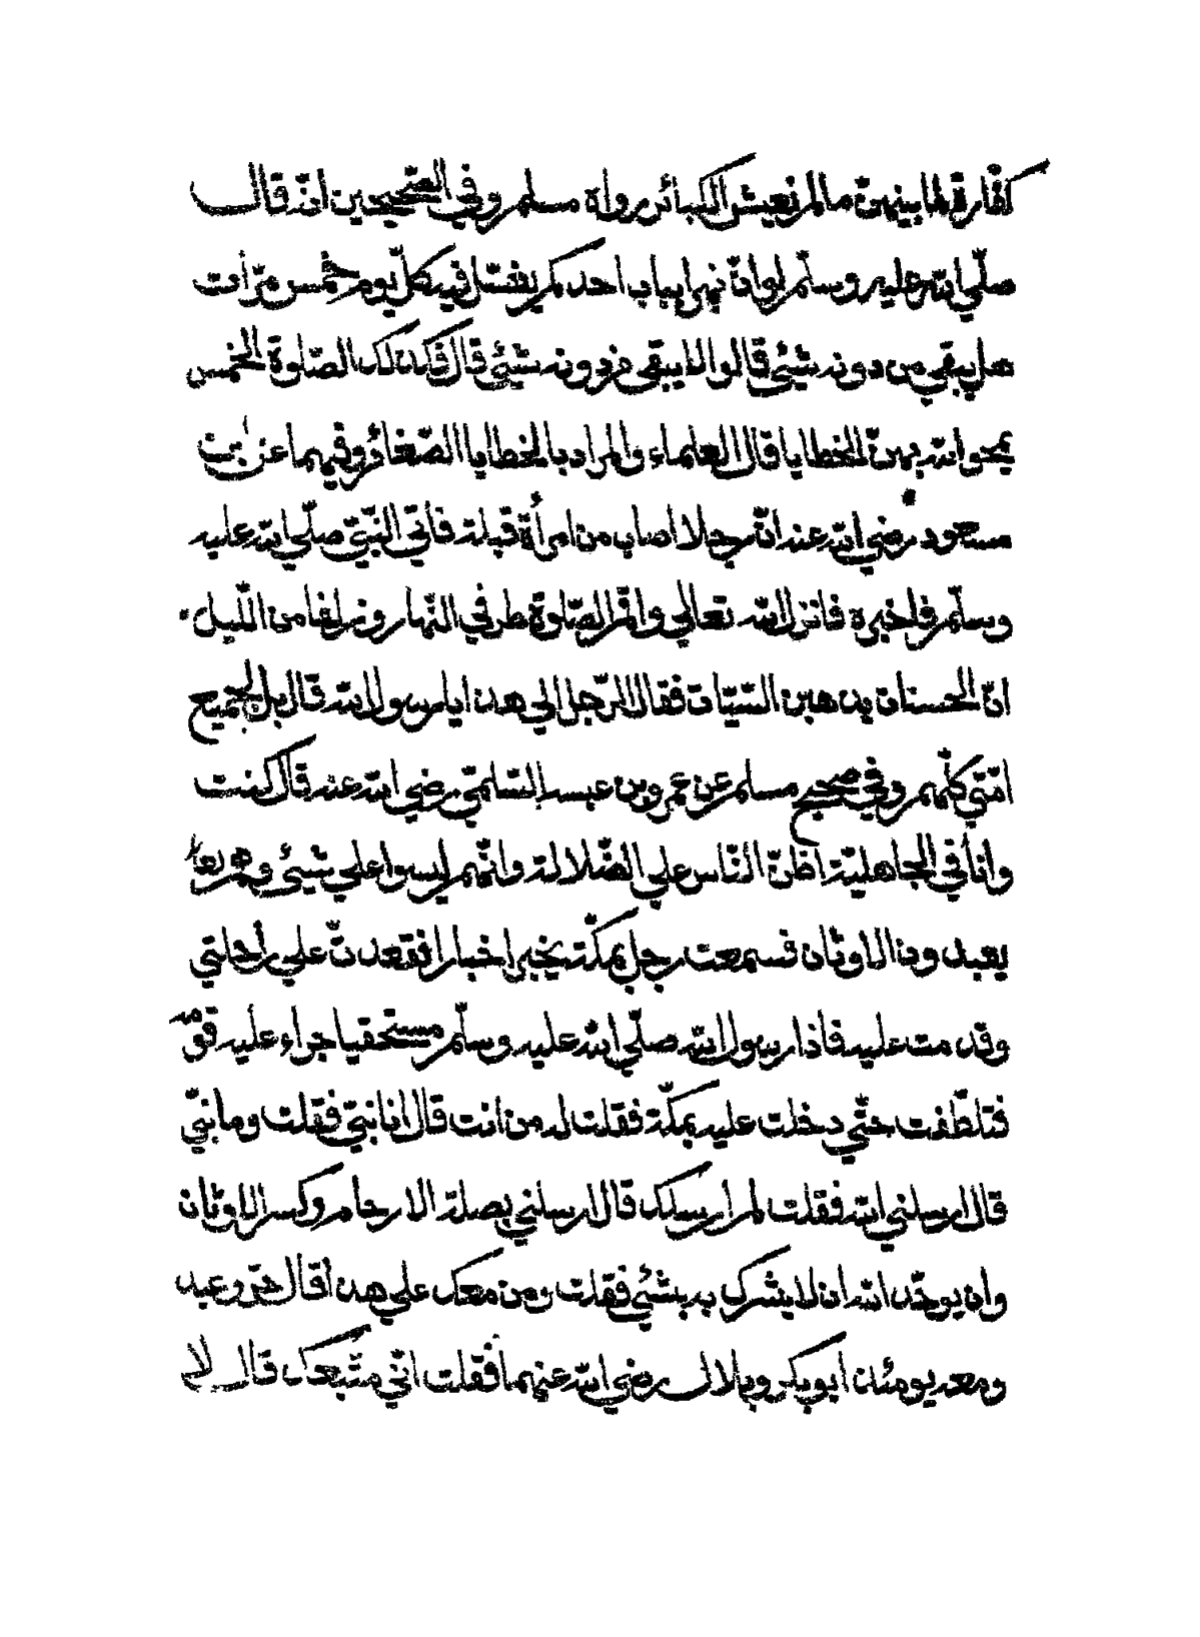 كفّارة لما بينهنّ ما لم تغش الكبائر رواه مسلم وفي الصّحيحين انّه قال
صلّي الله عليه وسلّم لو انّ نهرا بباب احدكم يغتسل فيه كلّ يوم خمس مرّات
هل يبقي من دونه شيئي قالوا لا يبقي من دونه شيئي قال فكذلك الصّلوة الخمس
يمحو الله بهنّ الخطايا قال العلماء والمراد بالخطايا الصّغائر وفيهما عن بن
مسعود رضي الله عنه انّ رجلا اصاب من امرأة قبلة فأتي النّبيّ صلّي الله عليه
وسلّم فاخبره فانزل الله تعالي واقم الصّلوة طرفي النّهار وزلفا من اللّيل
انّ الحسنات يذهبن السّيّات فقال الرّجل الي هذا يا رسول الله قال بل لجميع
امّتي كلّهم وفي صحيح مسلم عن عمرو بن عبسه السّلميّ رضي الله عنه قال كنت
وانا في الجاهليّة اظنّ النّاس علي الضّلالة وانّهم ليسوا علي شيئي وهم
يعبدون الاوثان فسمعت رجل بمكّة يخبر اخبارا فقعدتّ علي راحلتي
وقدمت عليه فاذا رسول الله صلّي الله عليه وسلّم مستخفيا جراء عليه قومه
فتلطّفت حتّي دخلت عليه بمكّة فقلت له من انت قال انا نبيّ فقلت وما نبيّ
قال ارسلني الله فقلت لم أرسلك قال ارسلني بصلة الارحام وكسر الاوثان
وان يوحّد الله ان لا يشرك به بشئي فقلت ومن معك علي هذا قال حرّ وعبد
ومعه يومئذ ابو بكر وبلال رضي الله عنهما فقلت انّي متّبعك قال لا